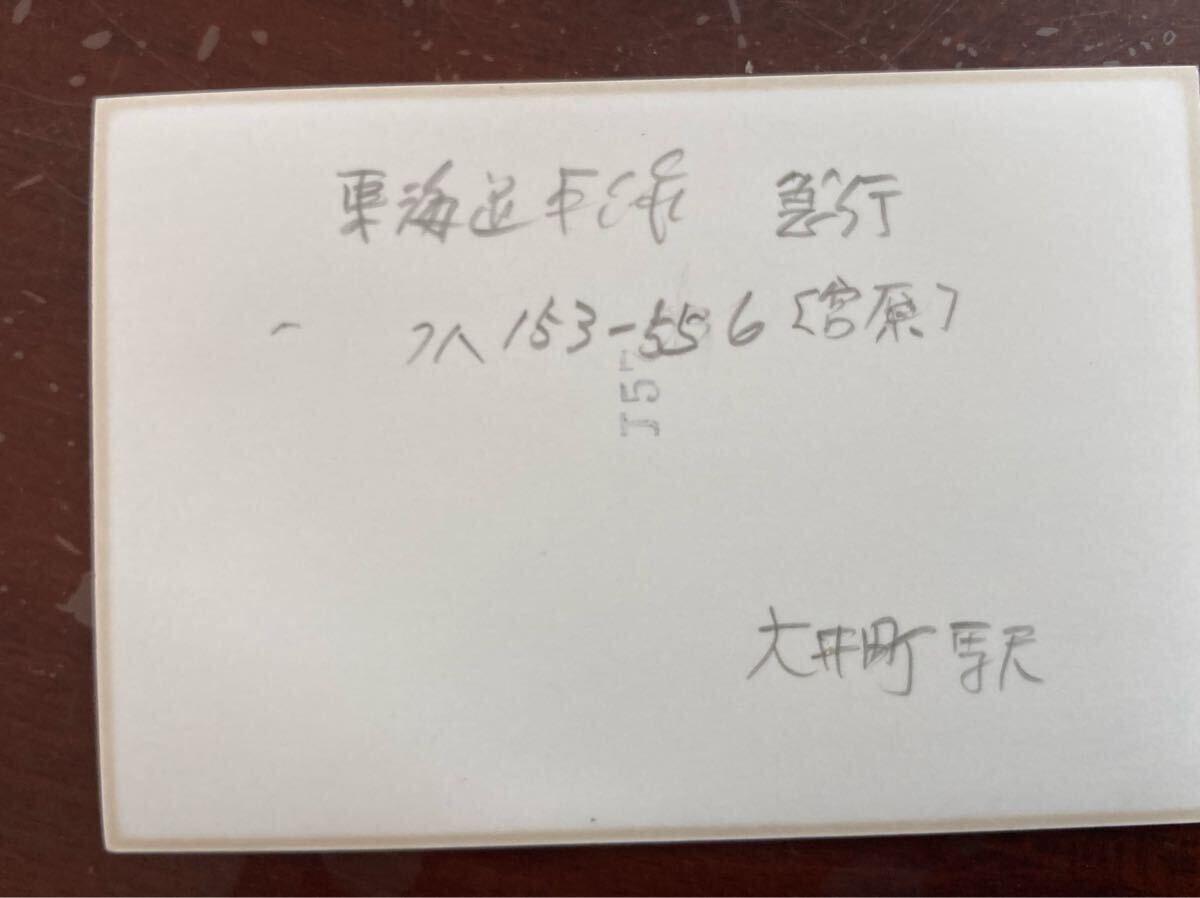 東海道本線 急行
クハ153-556〔宮原〕
J5
大井町駅